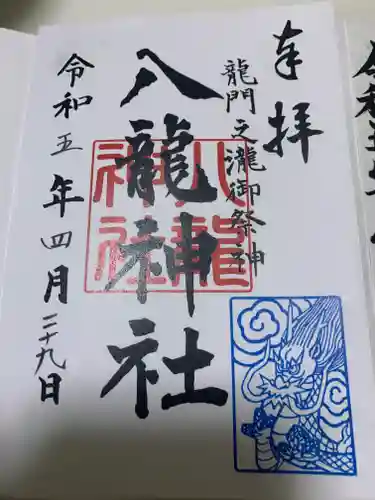 奉拝
龍門之瀧御祭神
八龍神社
八龍
神社
令和五年四月二十九日